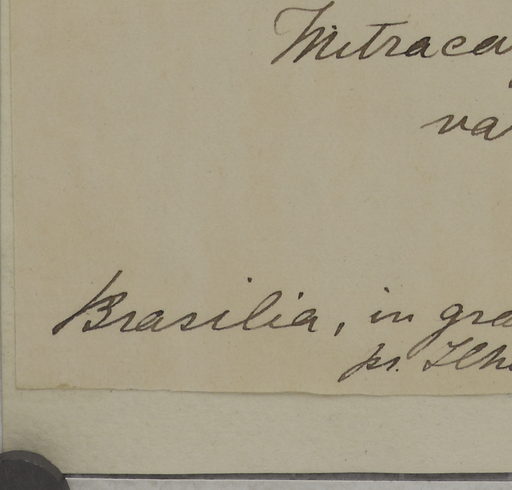 Mitraca
va
Brasilia, in gra
pr. Ilh